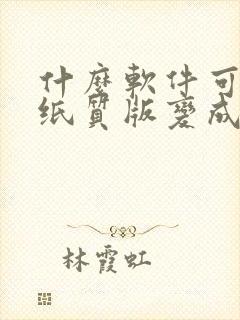 什麼軟件可
纸質版變成
林霞虹